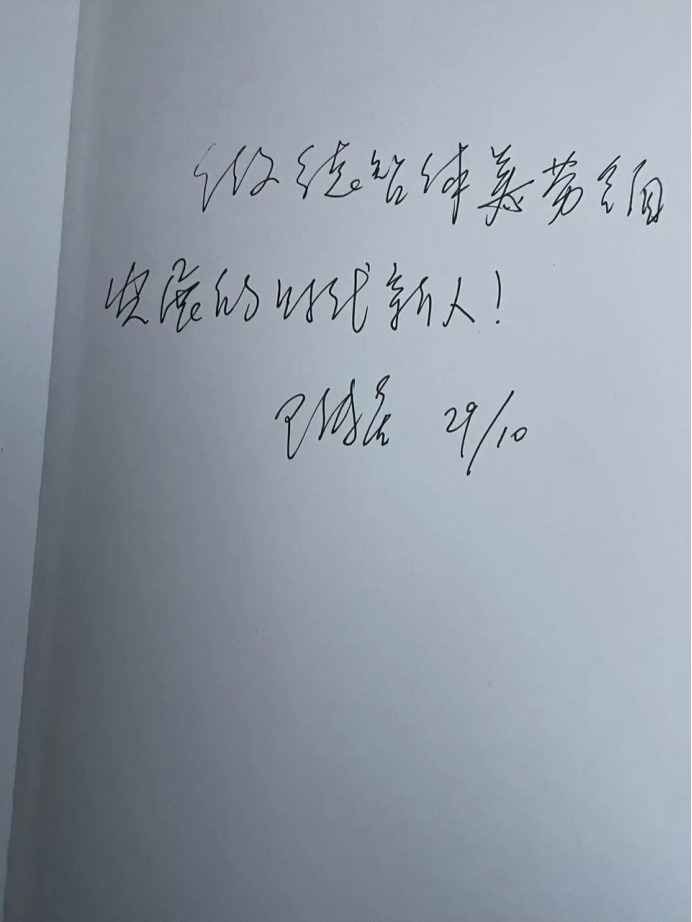 做德智体美劳全面
发展的时代新人!
29/10